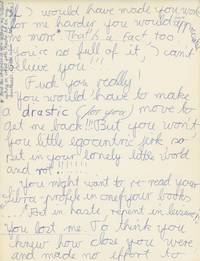 If I would have made you work
for me harder you would appreciate
me more. That's a fact too
You're so full of it, I can't
believe you!!!
Fuck you, really!
You would have to make
a drastic (for you) move to
get me back!!! But you won't
you little egocentric jerk so
set in your lonely little world
and rot!!!!!!!
You might want to re-read your
Libra profile in one of your books
"Act in haste, repent in leisure"
You lost me. To think you
knew how close you were
and made no effort to